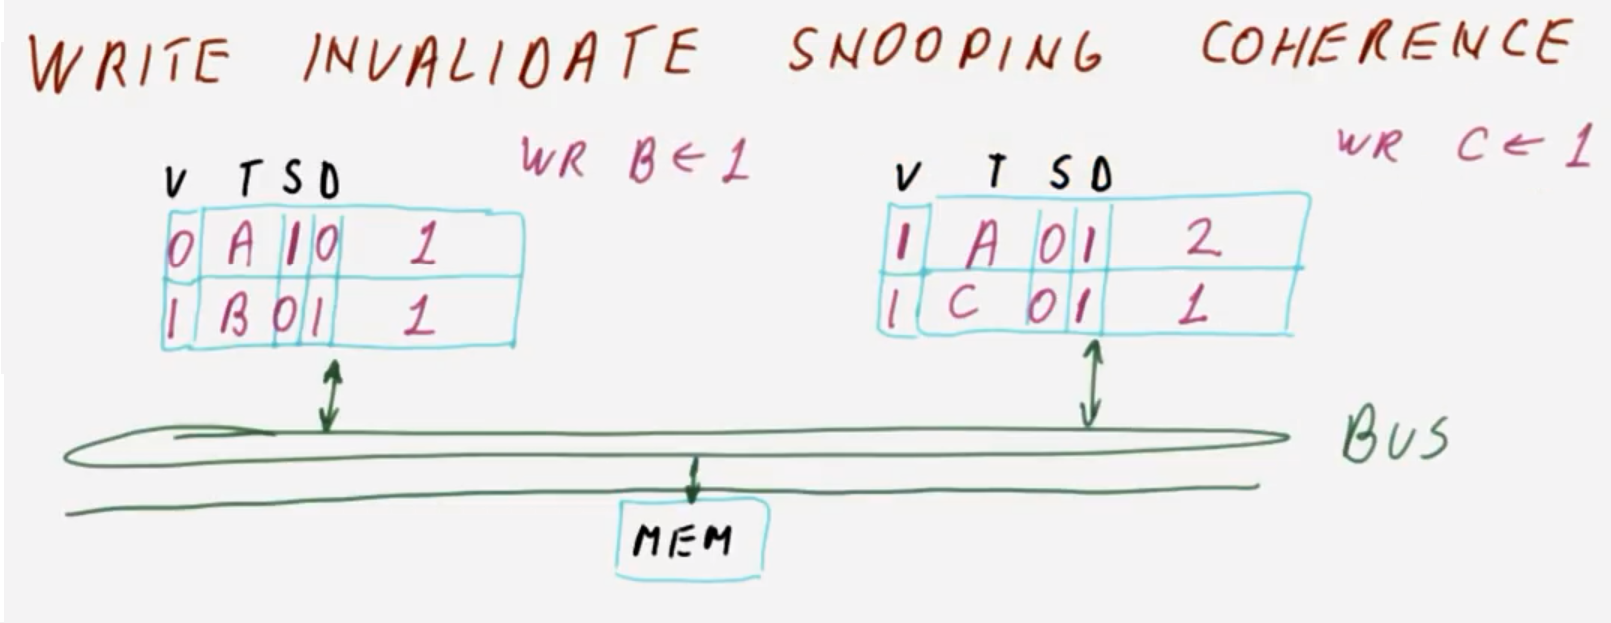 WRITE INVALIDATE SNOOPING COHERENCE
WR B ← 1
WR C ← 1
V T S D
0 A 1 0 1
1 B 0 1 1
V T S D
1 A 0 1 2
1 C 0 1 1
BUS
MEM